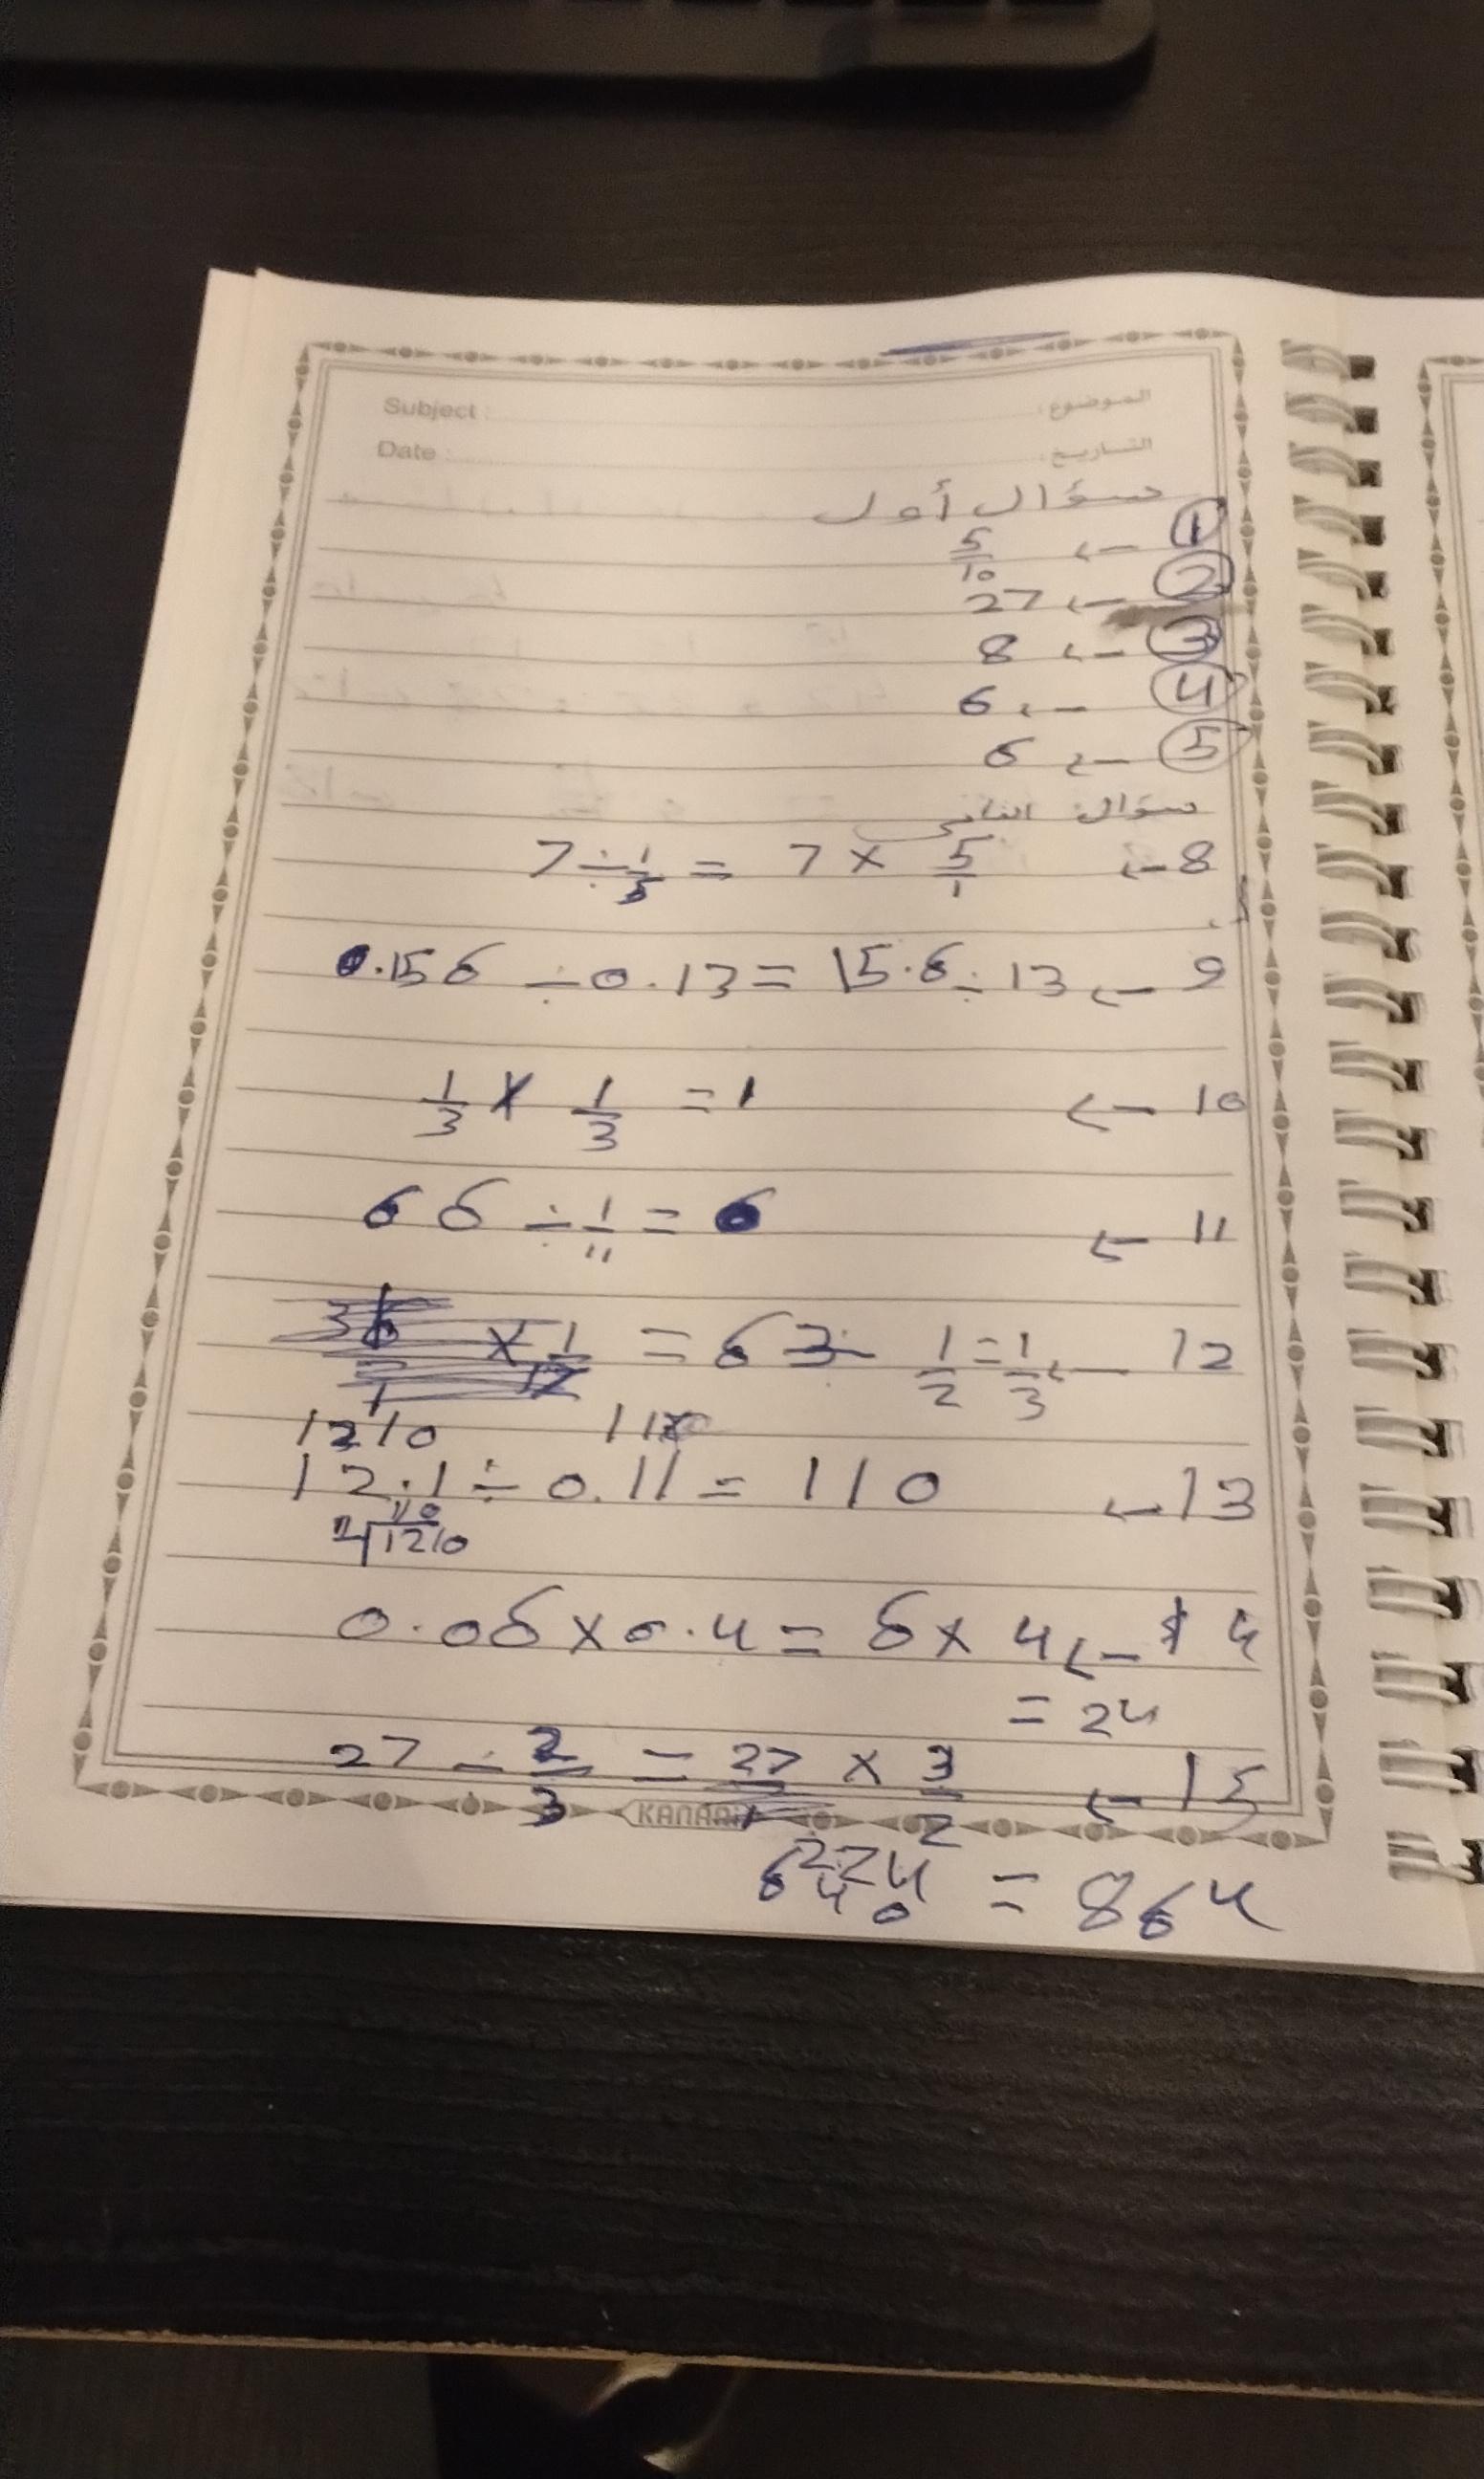 Subject : الموضوع :
Date : التاريخ :
سؤال أول
① ← 5/10
② ← 27
③ ← 8
④ ← 6
⑤ ← 6
سؤال الثاني
8 ← 7 ÷ 1/5 = 7 × 5/1
9 ← 0.156 ÷ 0.13 = 15.6 ÷ 13
10 ← 1/3 × 1/3 = 1
11 ← 66 ÷ 1/11 = 6
12 ← = 63 ÷ 1/2 = 1/3
1210 11
13 ← 12.1 ÷ 0.11 = 110
110
11√1210
14 ← 0.06 × 0.4 = 6 × 4
= 24
15 ← 27 ÷ 2/3 = 27/1 × 3/2
KANARI
= 864